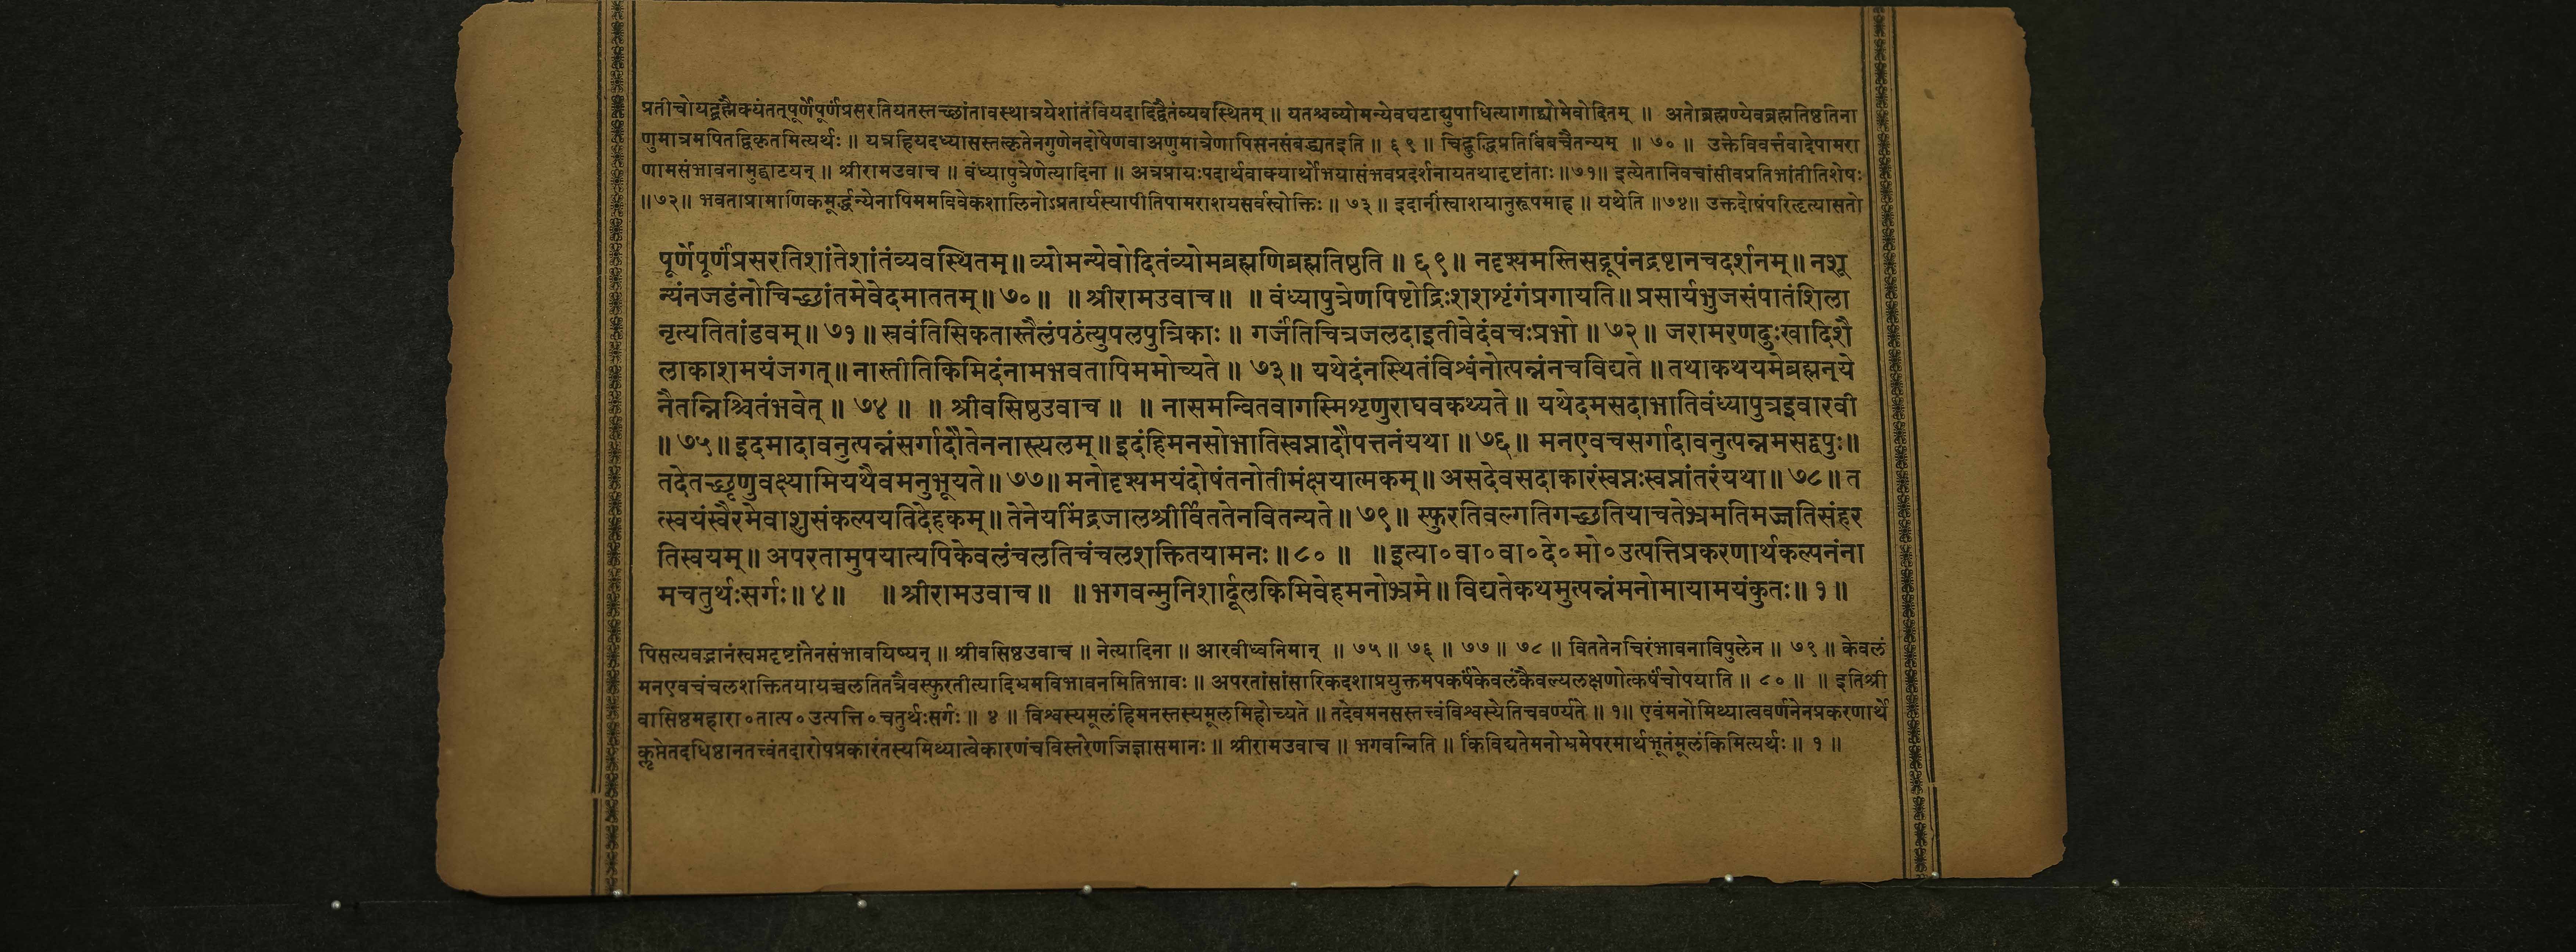 प्रतीचोयद्ब्रह्मैक्यंतत्पूर्णेपूर्णंप्रसरतियतस्तच्छांतावस्थात्रयेशांतंवियदादिद्वैतंव्यवस्थितम् ॥ यतश्चव्योमन्येवघटाद्युपाधित्यागाद्व्योमेवोदितम् ॥ अतोब्रह्मण्येवब्रह्मतिष्ठतिना
णुमात्रमपितद्विकृतमित्यर्थः ॥ यत्रहियदध्यासस्तत्कृतेनगुणेनदोषेणवाअणुमात्रेणापिसनसंबद्ध्यतइति ॥ ६९ ॥ चिद्बुद्धिप्रतिबिंबचैतन्यम् ॥ ७० ॥ उक्तेविवर्त्तवादेपामरा
णामसंभावनामुद्घाटयन् ॥ श्रीरामउवाच ॥ वंध्यापुत्रेणेत्यादिना ॥ अत्रप्रायःपदार्थवाक्यार्थोभयासंभवप्रदर्शनायतथादृष्टांताः ॥७१॥ इत्येतानिवचांसीवप्रतिभांतीतिशेषः
॥७२॥ भवताप्रामाणिकमूर्द्धन्येनापिममविवेकशालिनोऽप्रतार्यस्यापीतिपामराशयसर्वस्वोक्तिः ॥ ७३ ॥ इदानींस्वाशयानुरूपमाह ॥ यथेति ॥७४॥ उक्तदोषंपरिहृत्यासतो
पूर्णेपूर्णंप्रसरतिशांतेशांतंव्यवस्थितम् ॥ व्योमन्येवोदितंव्योमब्रह्मणिब्रह्मतिष्ठति ॥ ६९ ॥ नदृश्यमस्तिसद्रूपंनद्रष्टानचदर्शनम् ॥ नशू
न्यंनजडंनोचिच्छांतमेवेदमाततम् ॥ ७० ॥ ॥ श्रीरामउवाच ॥ ॥ वंध्यापुत्रेणपिष्टोद्रिःशशशृंगंप्रगायति ॥ प्रसार्यभुजसंपातंशिला
नृत्यतितांडवम् ॥ ७१ ॥ स्रवंतिसिकतास्तैलंपठंत्युपलपुत्रिकाः ॥ गर्जंतिचित्रजलदाइतीवेदंवचःप्रभो ॥ ७२ ॥ जरामरणदुःखादिशै
लाकाशमयंजगत् ॥ नास्तीतिकिमिदंनामभवतापिममोच्यते ॥ ७३ ॥ यथेदंनस्थितंविश्वंनोत्पन्नंनचविद्यते ॥ तथाकथयमेब्रह्मन्ये
नैतन्निश्चितंभवेत् ॥ ७४ ॥ ॥ श्रीवसिष्ठउवाच ॥ ॥ नासमन्वितवागस्मिशृणुराघवकथ्यते ॥ यथेदमसदाभातिवंध्यापुत्रइवारवी
॥ ७५ ॥ इदमादावनुत्पन्नंसर्गादौतेननास्त्यलम् ॥ इदंहिमनसोभातिस्वप्नादौपत्तनंयथा ॥ ७६ ॥ मनएवचसर्गादावनुत्पन्नमसद्वपुः ॥
तदेतच्छृणुवक्ष्यामियथैवमनुभूयते ॥ ७७ ॥ मनोदृश्यमयंदोषंतनोतीमंक्षयात्मकम् ॥ असदेवसदाकारंस्वप्नःस्वप्नांतरंयथा ॥ ७८ ॥ त
त्स्वयंस्वैरमेवाशुसंकल्पयतिदेहकम् ॥ तेनेयमिंद्रजालश्रीर्विततेनवितन्यते ॥ ७९ ॥ स्फुरतिवल्गतिगच्छतियाचतेभ्रमतिमज्जतिसंहर
तिस्वयम् ॥ अपरतामुपयात्यपिकेवलंचलतिचंचलशक्तितयामनः ॥ ८० ॥ ॥ इत्या॰ वा॰ वा॰ दे॰ मो॰ उत्पत्तिप्रकरणार्थकल्पनंना
मचतुर्थःसर्गः ॥ ४ ॥ ॥ श्रीरामउवाच ॥ ॥ भगवन्मुनिशार्दूलकिमिवेहमनोभ्रमे ॥ विद्यतेकथमुत्पन्नंमनोमायामयंकुतः ॥ १ ॥
पिसत्यवद्भानंस्वमदृष्टांतेनसंभावयिष्यन् ॥ श्रीवसिष्ठउवाच ॥ नेत्यादिना ॥ आरवीध्वनिमान् ॥ ७५ ॥ ७६ ॥ ७७ ॥ ७८ ॥ विततेनचिरंभावनाविपुलेन ॥ ७९ ॥ केवलं
मनएवचंचलशक्तितयायच्चलतितत्रैवस्फुरतीत्यादिभ्रमविभावनमितिभावः ॥ अपरतांसांसारिकदशाप्रयुक्तमपकर्षंकेवलंकैवल्यलक्षणोत्कर्षंचोपयाति ॥ ८० ॥ ॥ इतिश्री
वासिष्ठमहारा॰ तात्प॰ उत्पत्ति॰ चतुर्थःसर्गः ॥ ४ ॥ विश्वस्यमूलंहिमनस्तस्यमूलमिहोच्यते ॥ तदेवमनसस्तत्त्वंविश्वस्येतिचवर्ण्यते ॥ १॥ एवंमनोमिथ्यात्ववर्णनेनप्रकरणार्थे
कॢप्तेतदधिष्ठानतत्त्वंतदारोपप्रकारंतस्यमिथ्यात्वेकारणंचविस्तरेणजिज्ञासमानः ॥ श्रीरामउवाच ॥ भगवन्निति ॥ किंविद्यतेमनोभ्रमेपरमार्थभूतंमूलंकिमित्यर्थः ॥ १ ॥